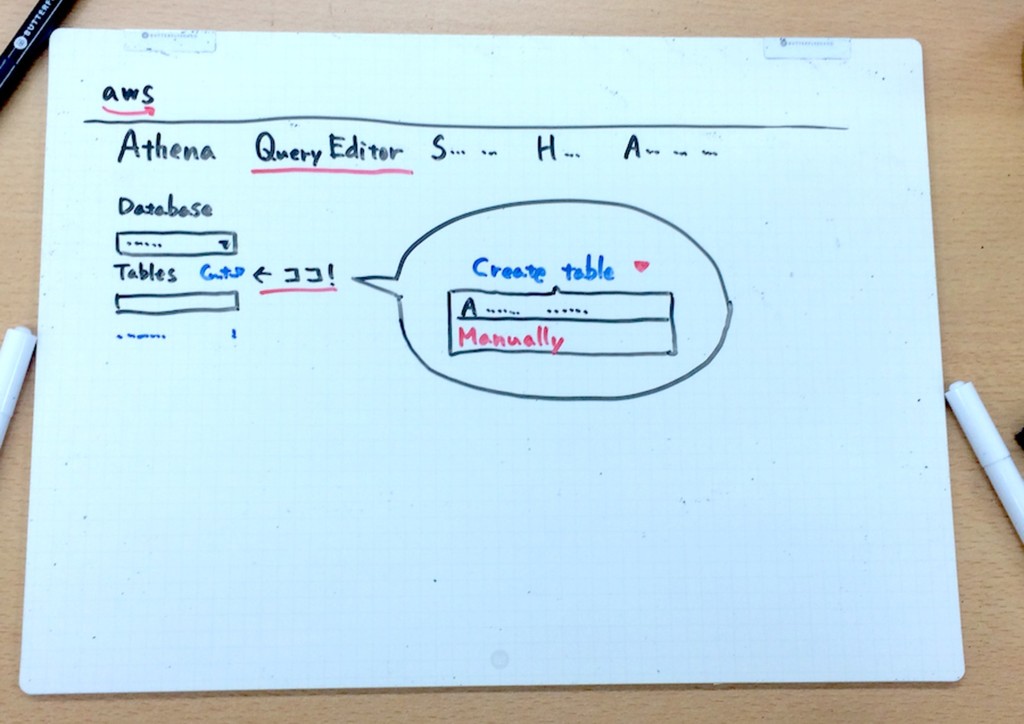 aws
Athena Query Editor S... .. H... A.. .. ..
Database
......
Tables ← ココ!
Create table
A ...... ......
Manually